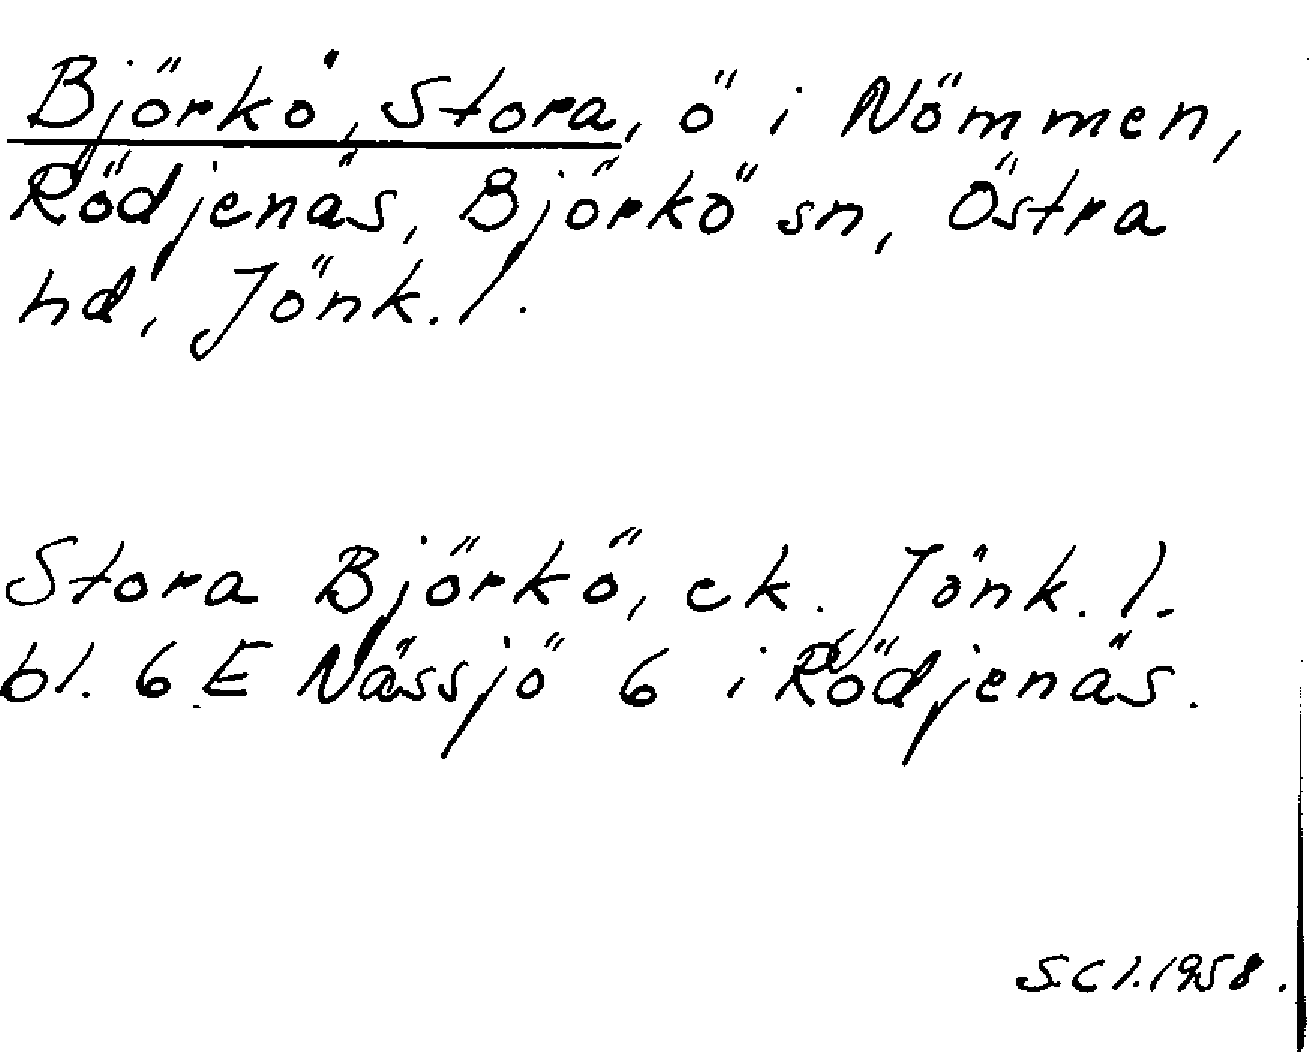 Björkö, Stora, ö i Nömmen,
Rödjenäs, Björkö sn, Östra
hd, Jönk. l.
Stora Björkö, ek. Jönk. l.
bl. 6 E Nässjö 6 i Rödjenäs.
S.C l. 1958.